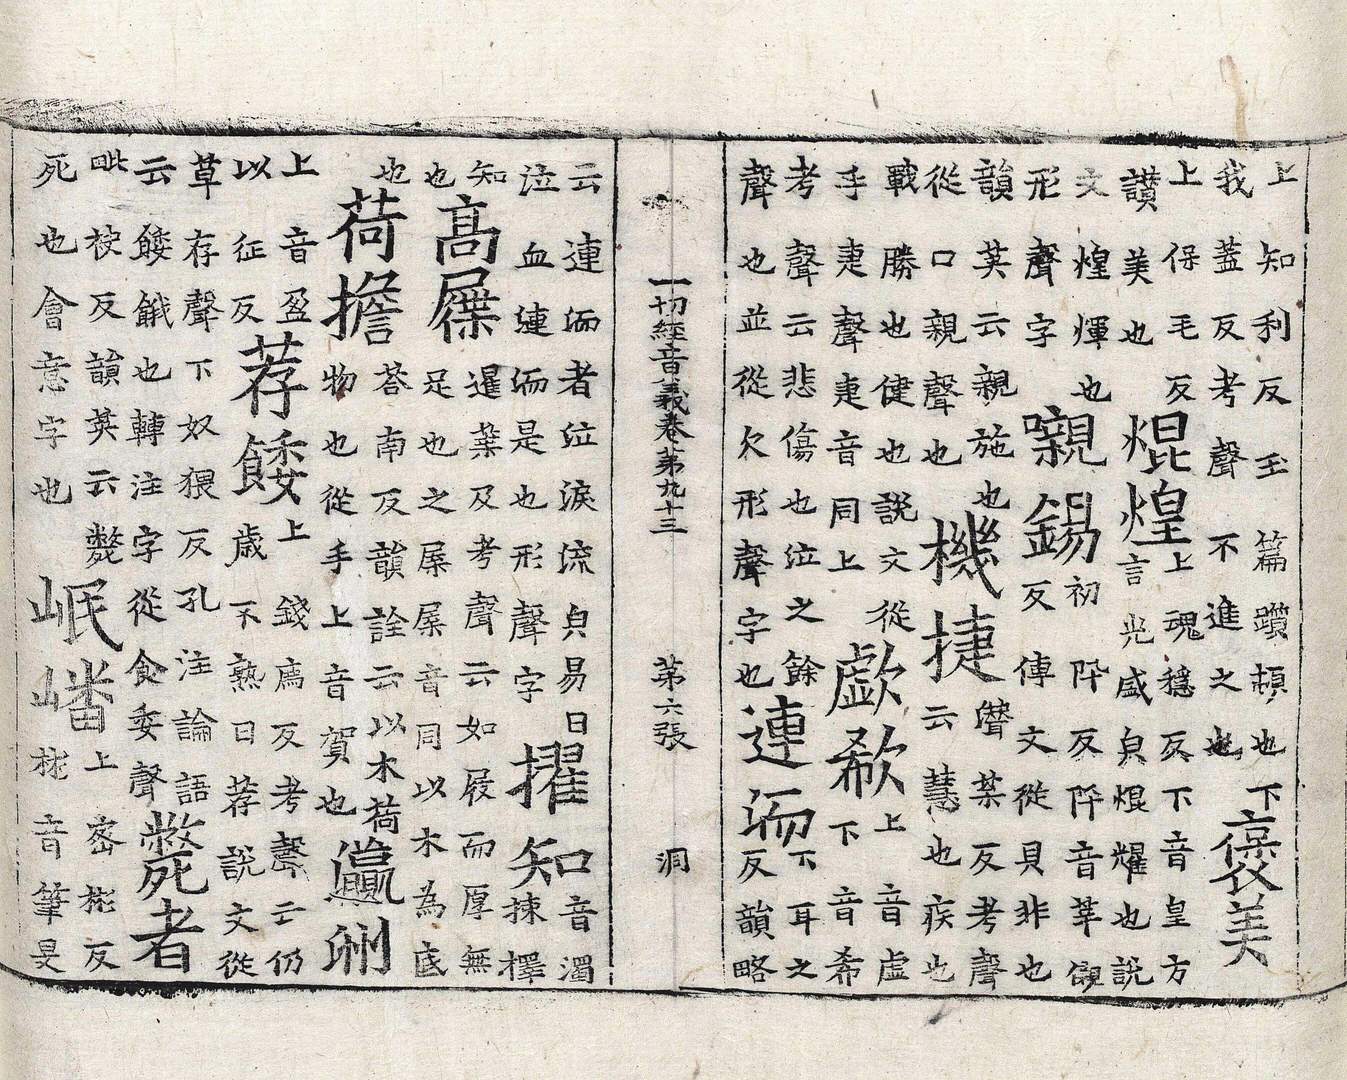 上知利反玉篇躓頓也下
我蓋反考聲不進之也
褒美
上保毛反
讃美也
焜煌
上魂穩反下音皇方
言光盛皃焜耀也說
文煌煇也
形聲字
嚫錫
初阠反阠音莘覲
反傳文從貝非也
韻英云親施也
從口親聲也
機捷
潛葉反考聲
云慧也疾也
戰勝也健也說文從
手疌聲疌音同上
歔欷
上音虛
下音希
考聲云悲傷也泣之餘
聲也並從欠形聲字也
連洏
下耳之
反韻略
一切經音義卷第九十三 第六張 洞
云連洏者泣淚流皃易曰
泣血連洏是也形聲字
擢知
音濁
揀擇
知
也
高屧
暹葉反考聲云如屐而厚無
足也之屧屧音同以木為底
也
荷擔
荅南反韻詮云以木荷
物也從手上音賀也
瀛洲
上音盈
以征反
荐餧
上錢薦反考聲云仍
歲不熟曰荐說文從
草存聲下奴猥反孔注論語
云餧餓也轉注字從食委聲
斃者
毗袂反韻英云斃
死也會意字也
岷嶓
上密彬反
彬音筆旻